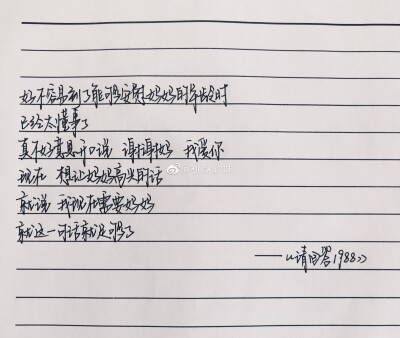 好不容易到了能够安慰妈妈的年龄时
已经太懂事了
真不好意思开口说 谢谢妈 我爱你
现在 想让妈妈高兴的话
就说 我现在需要妈妈
就这一句话就足够了
——《请回答1988》